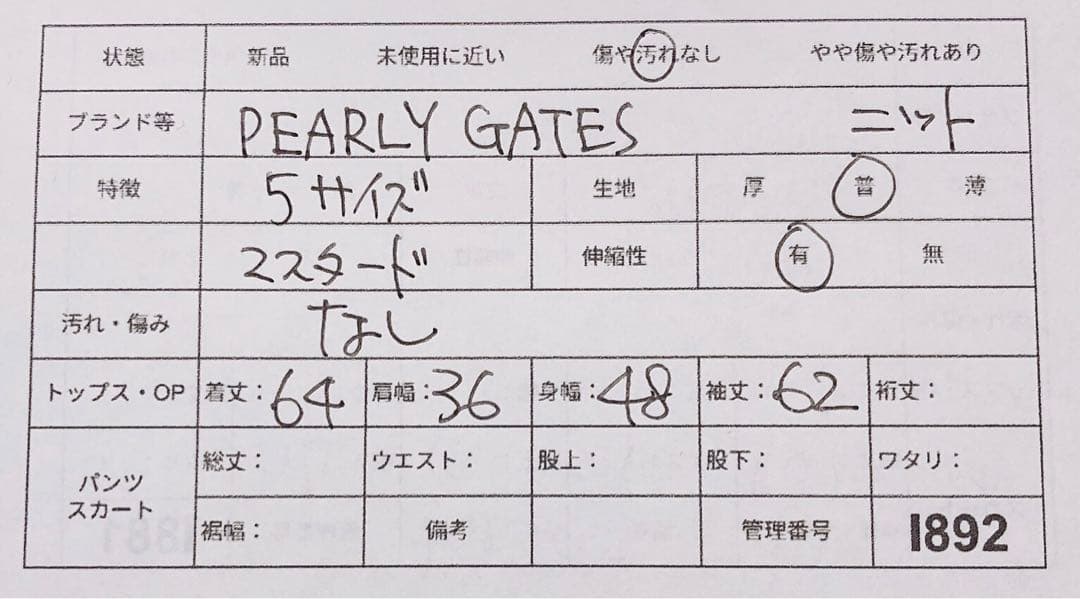 状態 新品 未使用に近い 傷や汚れなし やや傷や汚れあり
ブランド等 PEARLY GATES ニット
特徴 5サイズ 生地 厚 普 薄
マスタード 伸縮性 有 無
汚れ・傷み なし
トップス・OP 着丈：64 肩幅：36 身幅：48 袖丈：62 裄丈：
パンツ
スカート
総丈： ウエスト： 股上： 股下： ワタリ：
裾幅： 備考 管理番号 1892